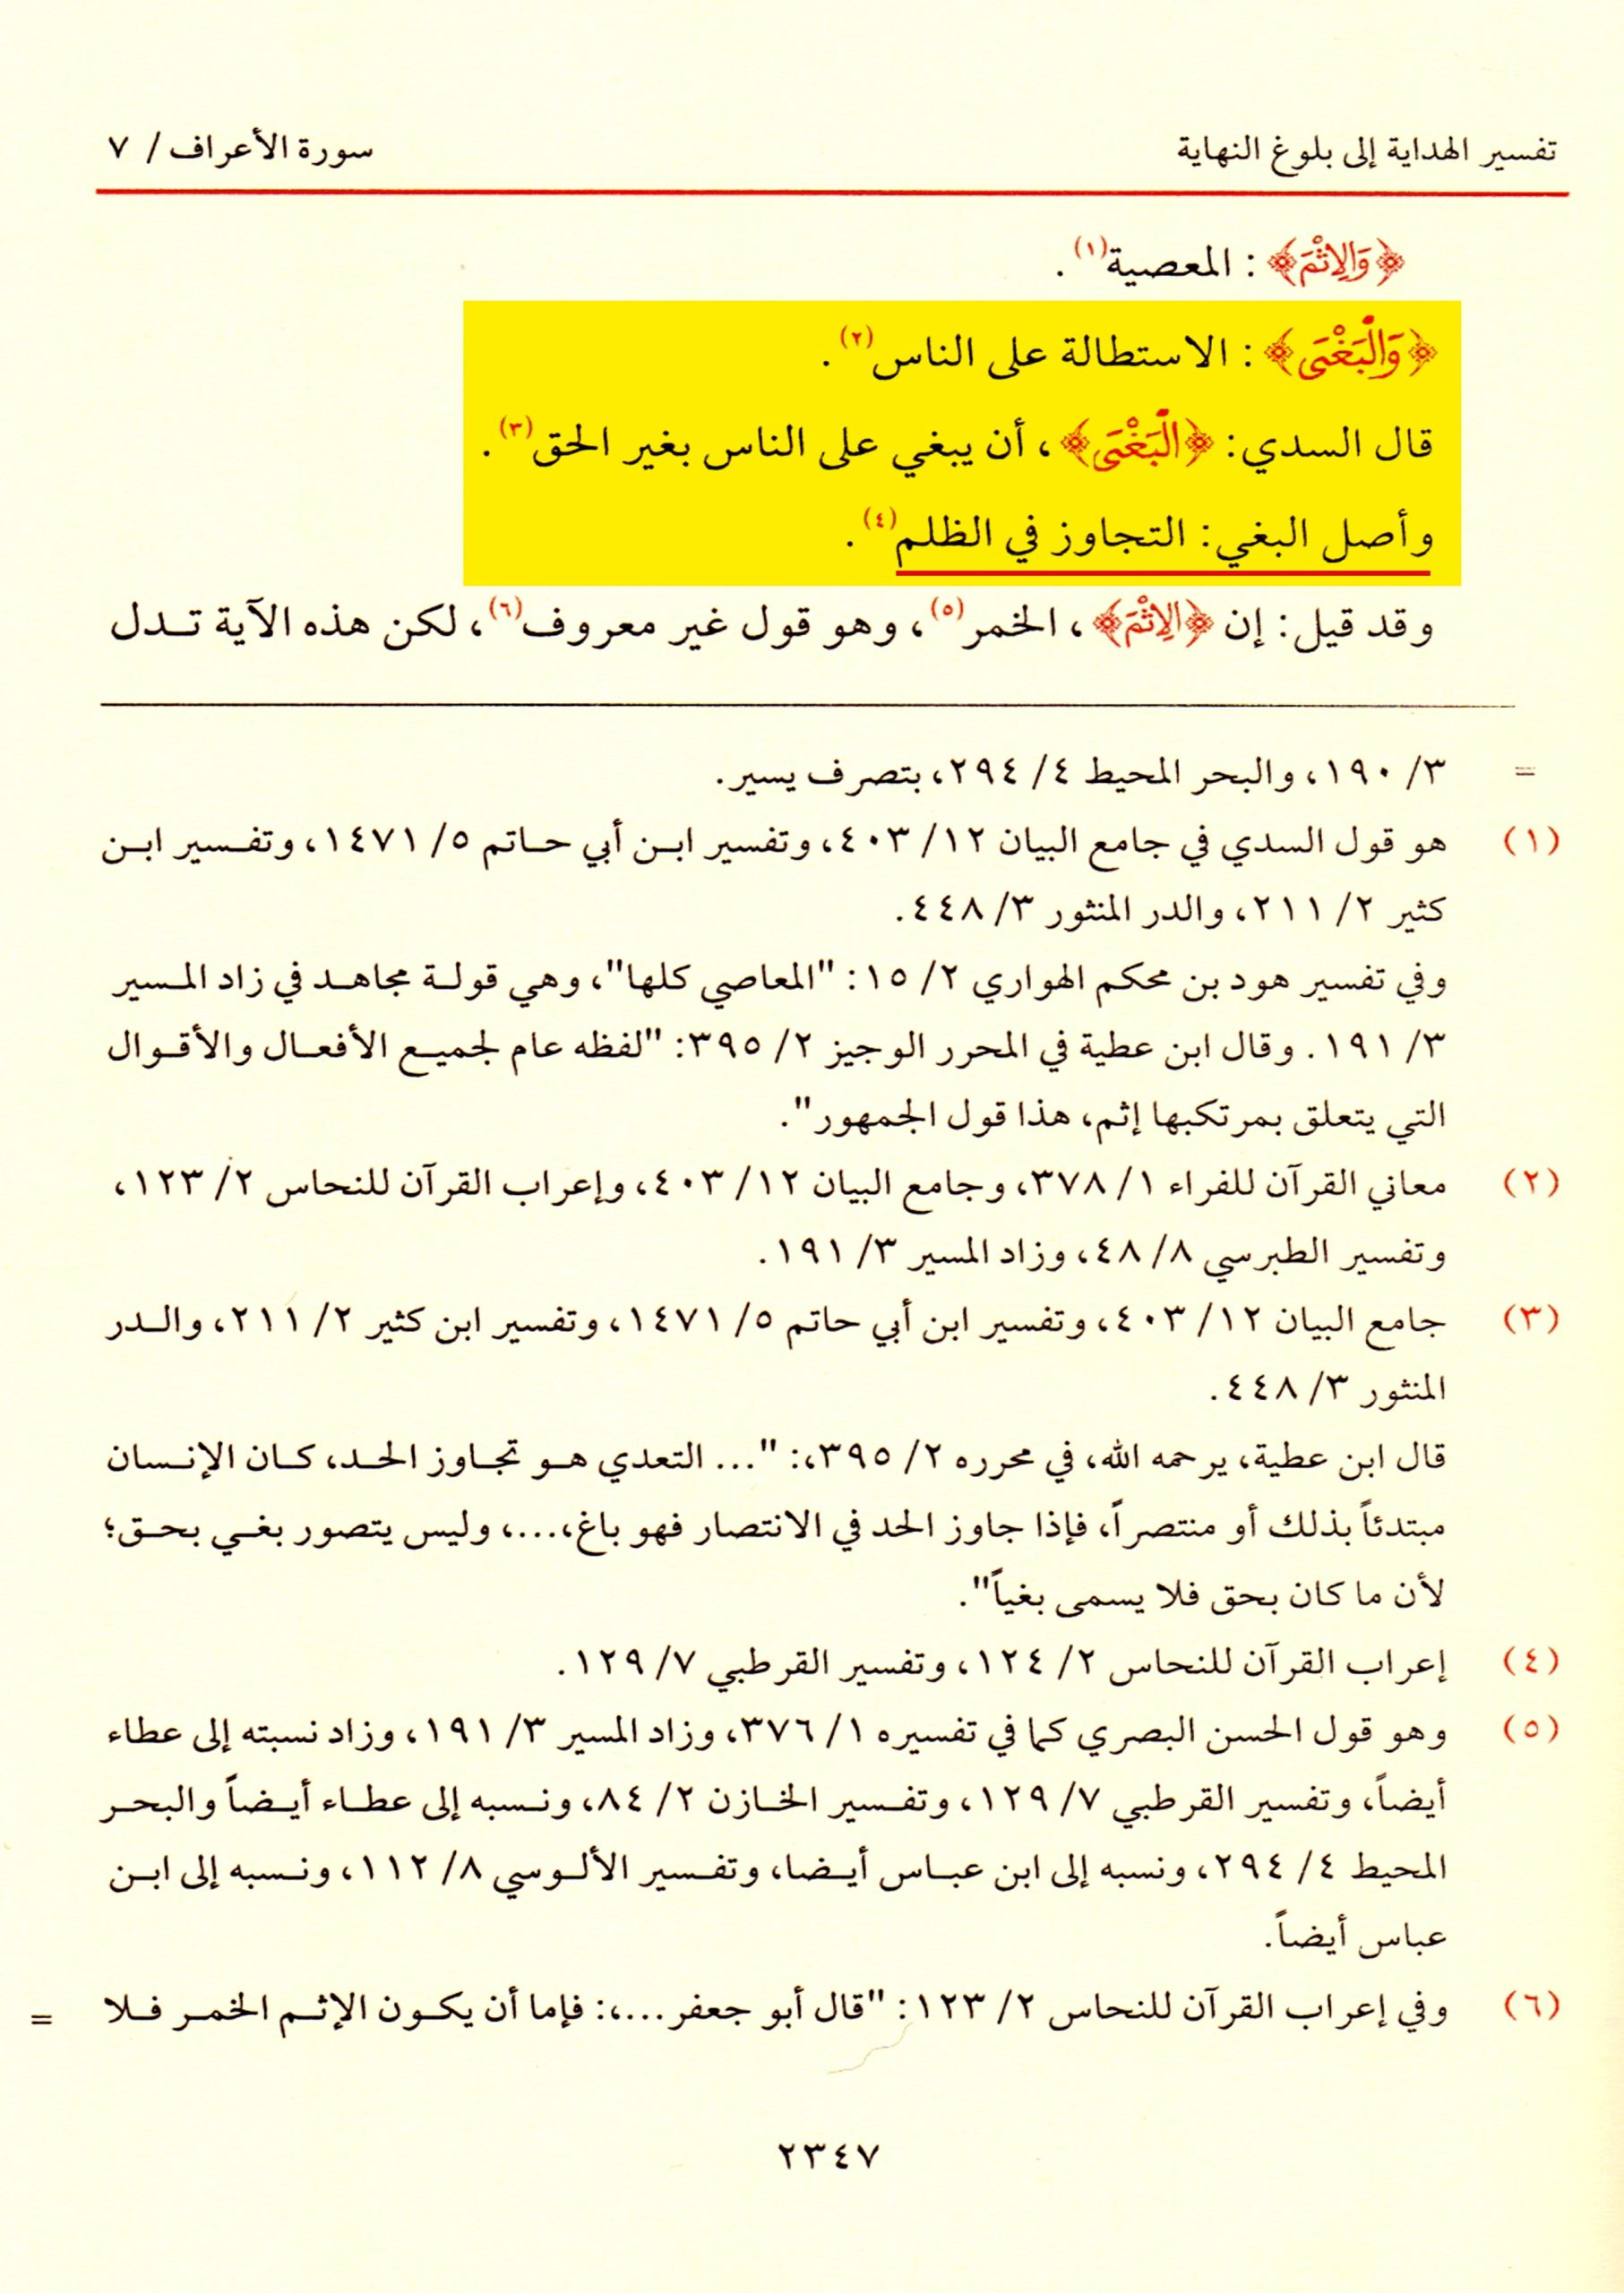 تفسير الهداية إلى بلوغ النهاية
سورة الأعراف / ٧
﴿وَالِاثْمَ﴾ : المعصية(١).
﴿وَالْبَغْىَ﴾ : الاستطالة على الناس(٢).
قال السدي: ﴿الْبَغْىَ﴾، أن يبغي على الناس بغير الحق(٣).
وأصل البغي: التجاوز في الظلم(٤).
وقد قيل: إن ﴿الِاثْمَ﴾، الخمر(٥)، وهو قول غير معروف(٦)، لكن هذه الآية تدل
= ٣/ ١٩٠، والبحر المحيط ٤/ ٢٩٤، بتصرف يسير.
(١) هو قول السدي في جامع البيان ١٢/ ٤٠٣، وتفسير ابن أبي حاتم ٥/ ١٤٧١، وتفسير ابن
كثير ٢/ ٢١١، والدر المنثور ٣/ ٤٤٨.
وفي تفسير هود بن محكم الهواري ٢/ ١٥: "المعاصي كلها"، وهي قولة مجاهد في زاد المسير
٣/ ١٩١. وقال ابن عطية في المحرر الوجيز ٢/ ٣٩٥: "لفظه عام لجميع الأفعال والأقوال
التي يتعلق بمرتكبها إثم، هذا قول الجمهور".
(٢) معاني القرآن للفراء ١/ ٣٧٨، وجامع البيان ١٢/ ٤٠٣، وإعراب القرآن للنحاس ٢/ ١٢٣،
وتفسير الطبرسي ٨/ ٤٨، وزاد المسير ٣/ ١٩١.
(٣) جامع البيان ١٢/ ٤٠٣، وتفسير ابن أبي حاتم ٥/ ١٤٧١، وتفسير ابن كثير ٢/ ٢١١، والدر
المنثور ٣/ ٤٤٨.
قال ابن عطية، يرحمه الله، في محرره ٢/ ٣٩٥،: "... التعدي هو تجاوز الحد، كان الإنسان
مبتدئاً بذلك أو منتصراً، فإذا جاوز الحد في الانتصار فهو باغ،...، وليس يتصور بغي بحق؛
لأن ما كان بحق فلا يسمى بغياً".
(٤) إعراب القرآن للنحاس ٢/ ١٢٤، وتفسير القرطبي ٧/ ١٢٩.
(٥) وهو قول الحسن البصري كما في تفسيره ١/ ٣٧٦، وزاد المسير ٣/ ١٩١، وزاد نسبته إلى عطاء
أيضاً، وتفسير القرطبي ٧/ ١٢٩، وتفسير الخازن ٢/ ٨٤، ونسبه إلى عطاء أيضاً والبحر
المحيط ٤/ ٢٩٤، ونسبه إلى ابن عباس أيضا، وتفسير الألوسي ٨/ ١١٢، ونسبه إلى ابن
عباس أيضاً.
(٦) وفي إعراب القرآن للنحاس ٢/ ١٢٣: "قال أبو جعفر...،: فإما أن يكون الإثم الخمر فلا =
٢٣٤٧